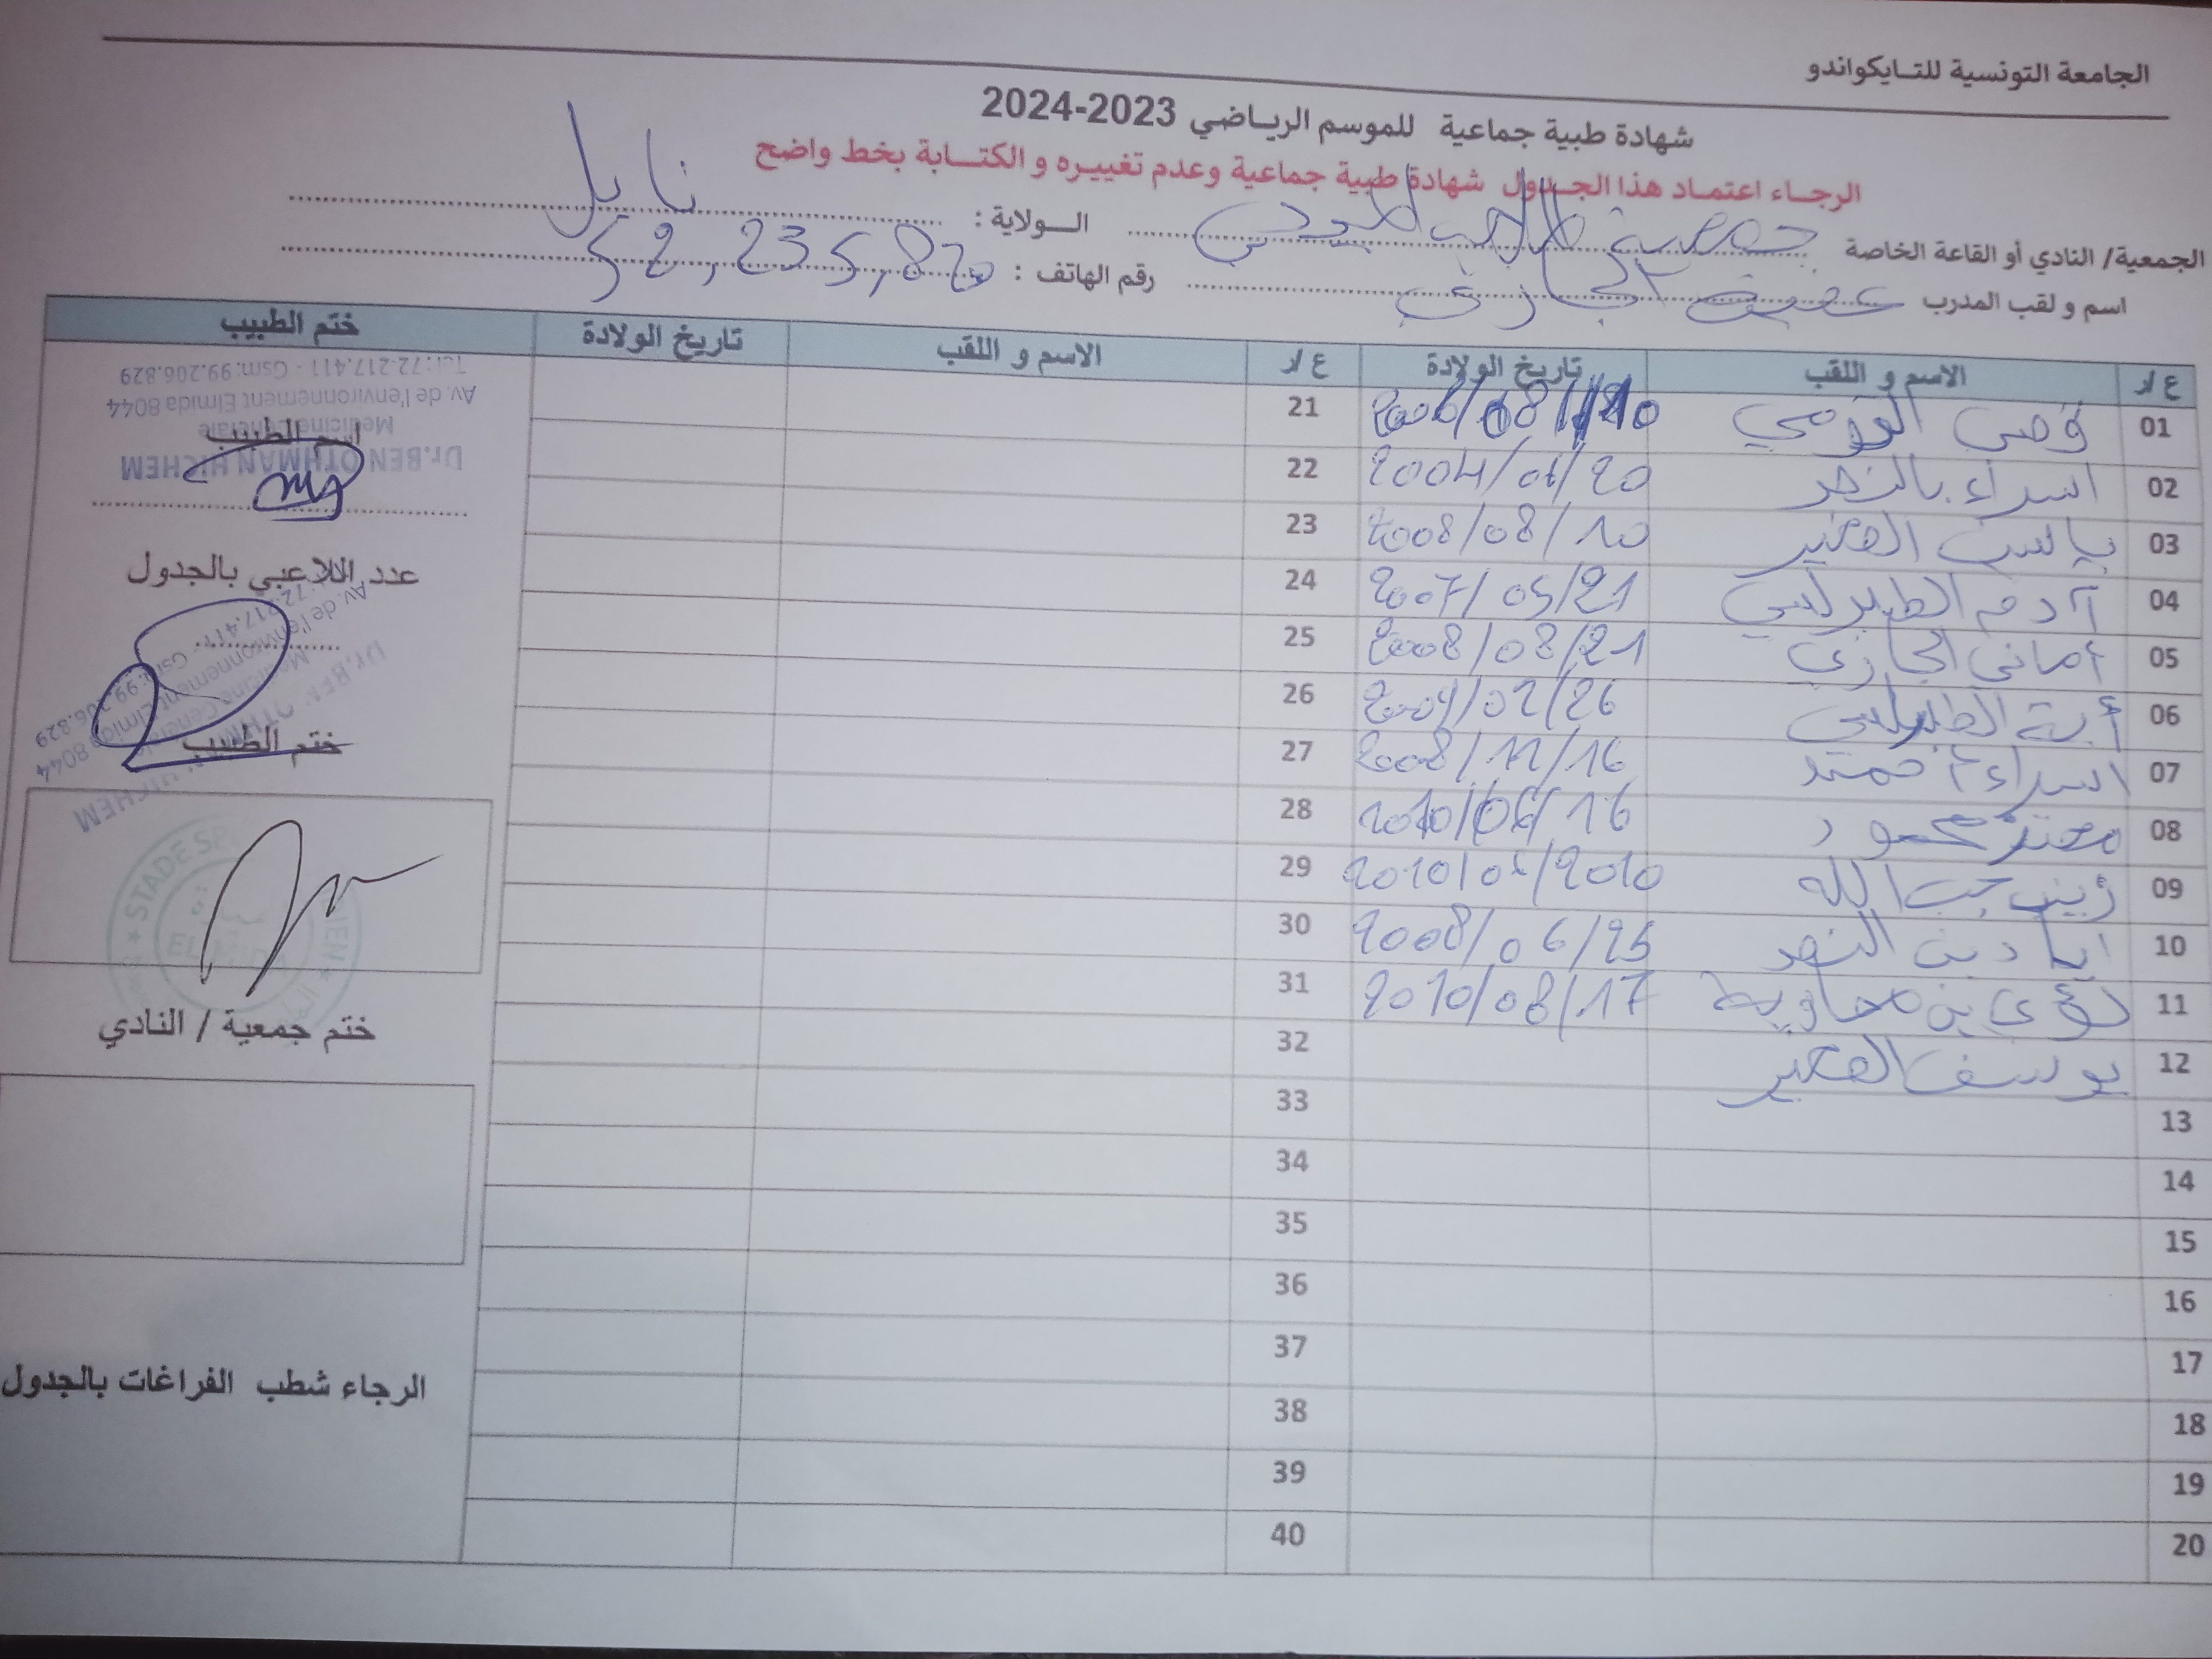 الجامعة التونسية للتايكواندو
شهادة طبية جماعية للموسم الرياضي 2023-2024
الرجاء اعتماد هذا الجدول شهادة طبية جماعية وعدم تغييره و الكتابة بخط واضح
الجمعية/ النادي أو القاعة الخاصة جمعية الولاية : نابل
اسم و لقب المدرب رقم الهاتف : 52,235,820
ع /ر الاسم و اللقب تاريخ الولادة ع /ر الاسم و اللقب تاريخ الولادة ختم الطبيب
01 قصي 21
02 اسراء بالنصر 2004/01/20 22
03 ياسين الصغير 2008/08/10 23
04 آدم الطرابلسي 2007/05/21 24
05 أماني الحجازي 2008/08/21 25
06 الطرابلسي 26
07 اسراء 2008/11/16 27
08 معتز محمود 2010/06/16 28
09 زينب جاب الله 29
10 اياد بن النصر 2008/06/25 30
11 لؤي بن معاوية 2010/08/17 31
12 يوسف الصغير 32
13 33
14 34
15 35
16 36
17 37
18 38
19 39
20 40
Dr.BEN OTHMAN HICHEM
Medicine Générale
Av. de l'environnement Elmida 8044
Tel:72.217.411 - Gsm:99.206.829
اسم الطبيب
عدد اللاعبي بالجدول
Dr.BEN OTHMAN HICHEM
Medicine Générale
Av. de l'environnement Elmida 8044
72.217.411 - Gsm:99.206.829
ختم الطبيب
STADE
ختم جمعية / النادي
الرجاء شطب الفراغات بالجدول